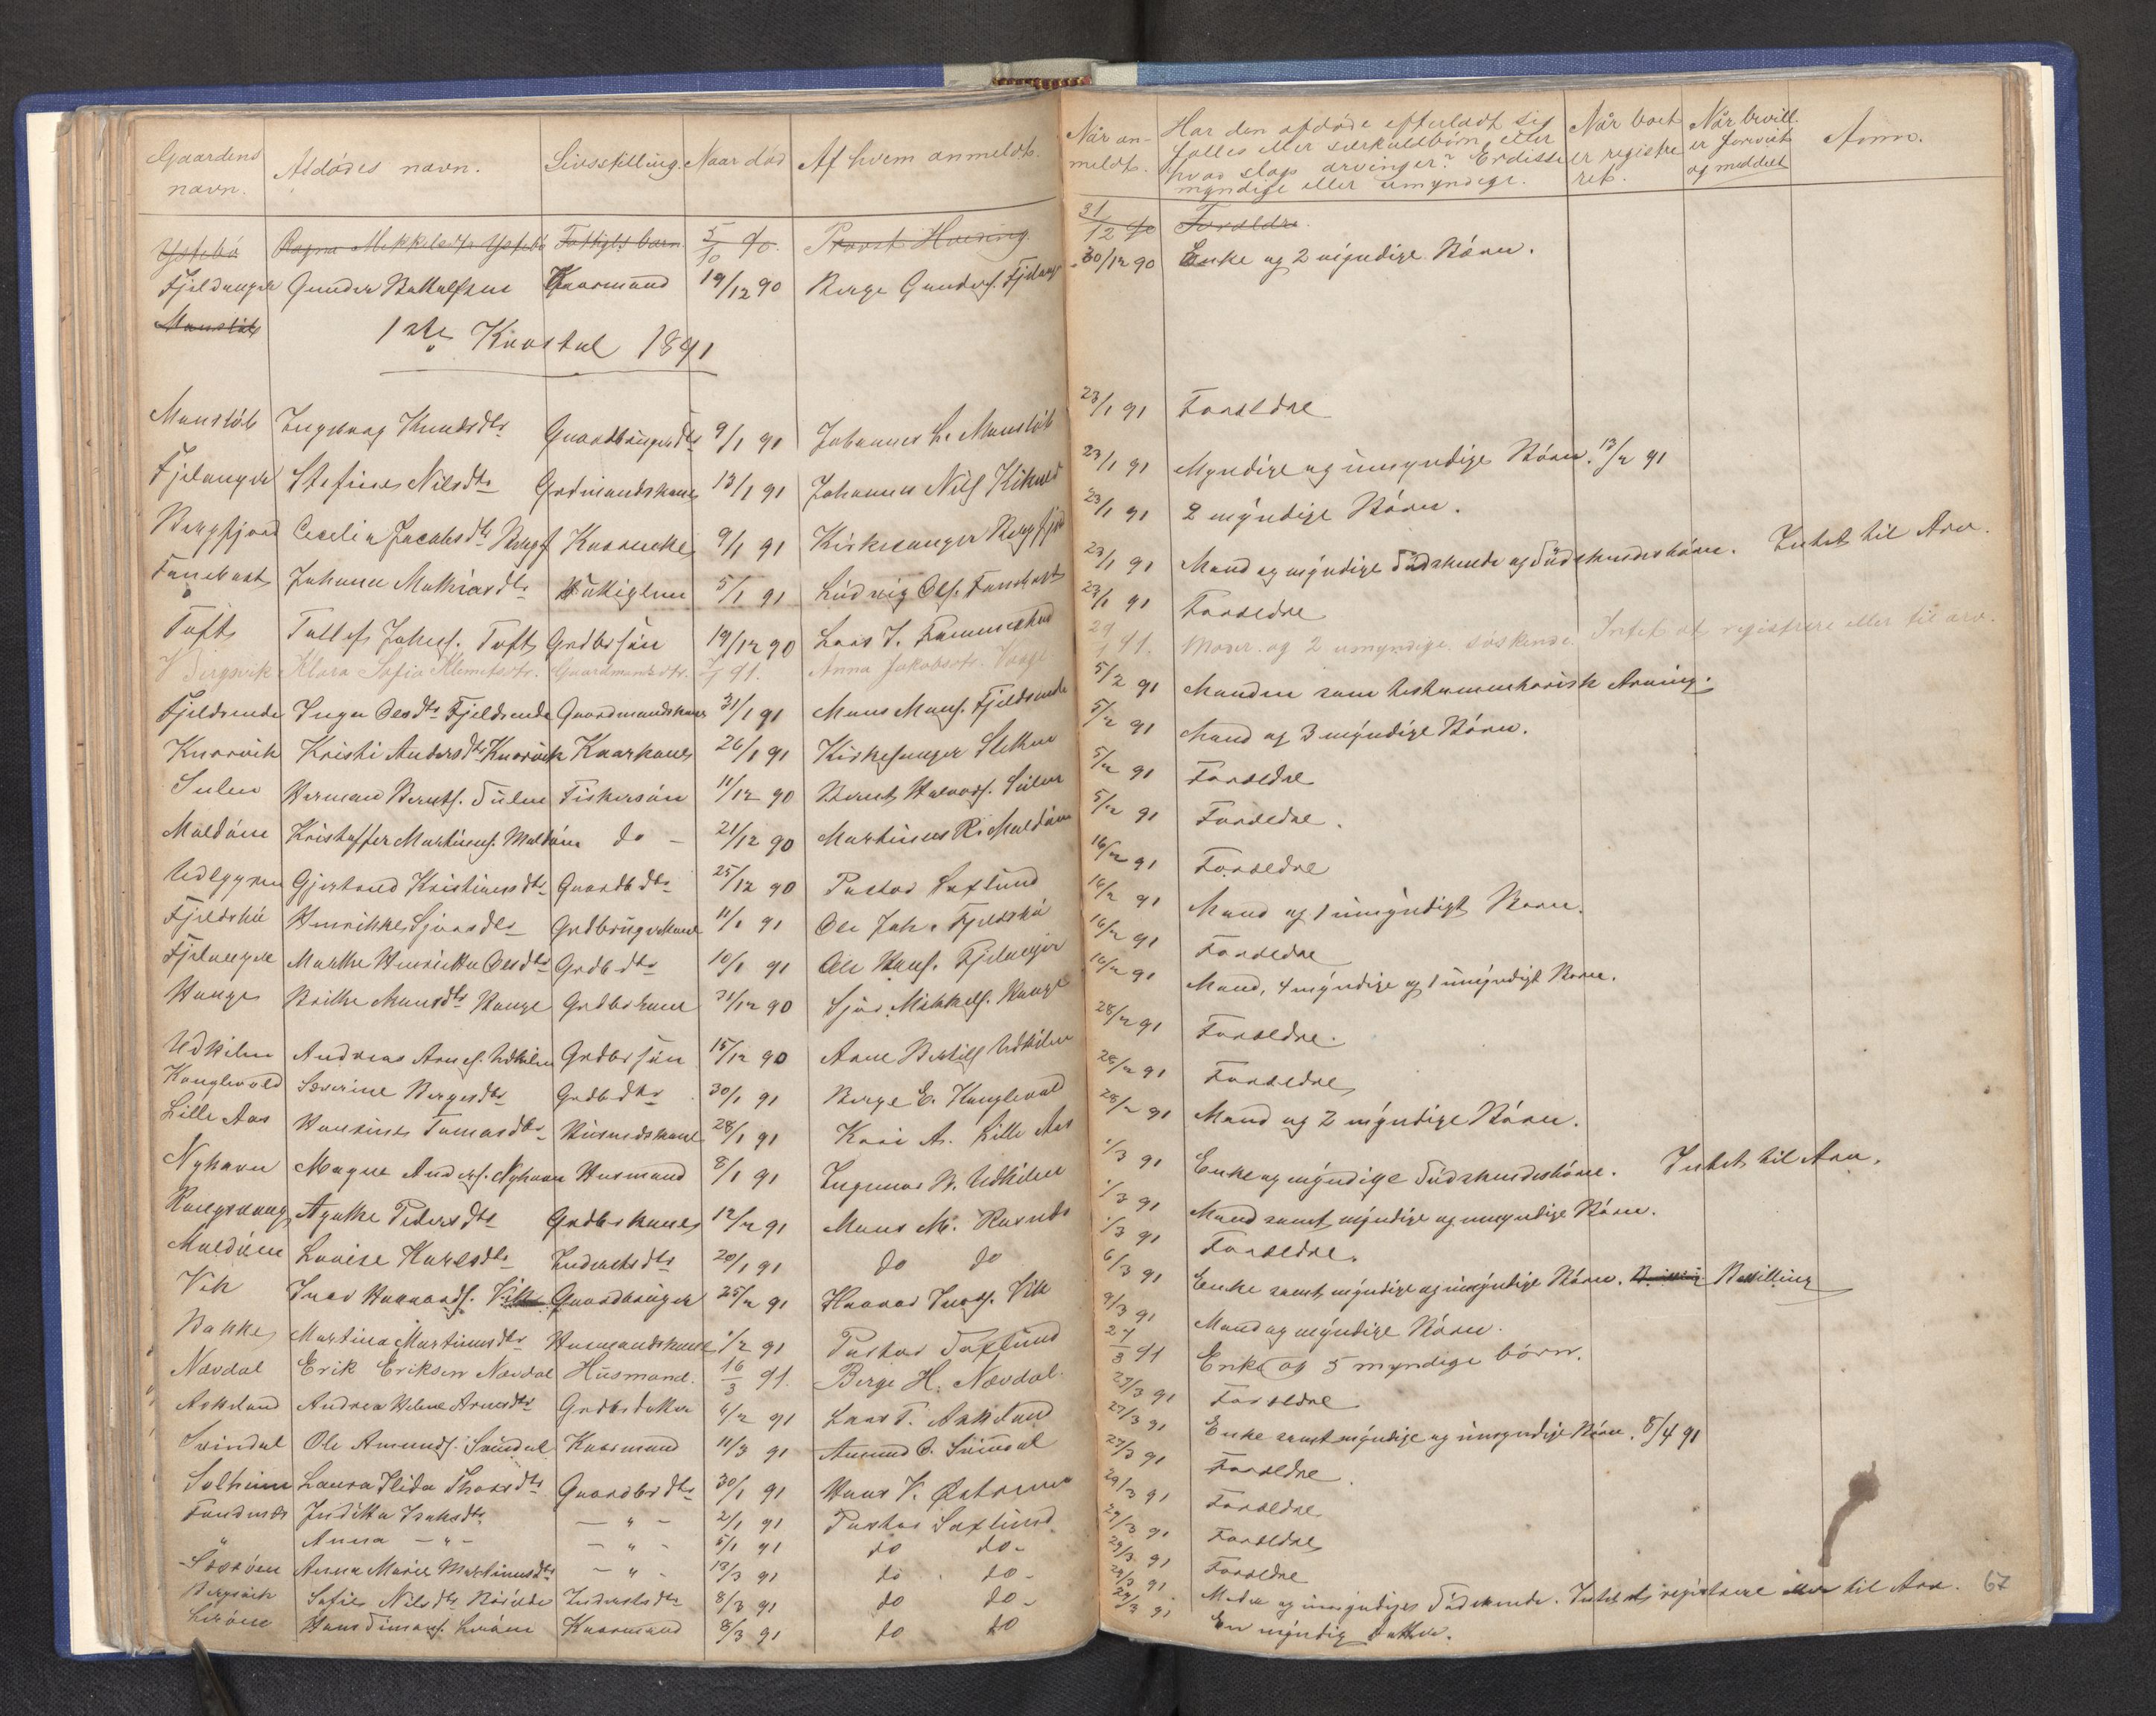 Gaardens navn. Afdødes navn. Livsstilling. Naar død Af hvem anmeldt. Når anmeldt. Har den afdøde efterladt sig fælles eller særkuldbørn eller hvad slags arvinger? Er disse myndige eller umyndige. Når boet er registreret. Når bevill. er forevist og meddelt Anm.
Ragna Mekkelsdtr Fattigls barn 5/10 90. Provst Harding 31/12 90 Forældre.
Fjeldanger Gunder Kaarmand 19/12 90 Berge Gunders. Fjelang 30/12 90 Enke og 2 myndige Børn.
Manslåt
1ste Kvartal 1891
Manslåt Ingeborg Knudsdtr Gaardbrugerdtr 9/1 91 Johannes L. Manslåt 23/1 91 Forældre
Fjelanger Stefine Nilsdtr Grdmandskone 13/1 91 Johannes Nils 23/1 91 Myndige og umyndige Børn. 13/2 91
Bergfjord Cecelia Jacobsdtr Bergf Kaarenke 9/1 91 Kirkesanger Bergfjord 23/1 91 2 myndige Børn.
Fanebust Johanne Mathiasdtr Fattiglem 5/1 91 Ludvig Ols. Fanebust 23/1 91 Mand og myndige Sødskende og Sødskendebørn. Intet til Arv.
Toft Tollef Johns. Toft Grdbr søn 19/12 90 Lars J. 23/1 91 Forældre
V. Bergsvik Klara Sofia Klemetsdtr. Gaardmandsdtr. 91. Anna Jakobsdtr. Vaage 29/1 91. Moder og 2 umyndige søskende. Intet at registrere eller til arv.
Fjeldsende Inga Olsdtr Fjeldsende Gaardmandskone 31/1 91 Mons Mons. Fjeldsende 5/2 91 Manden som testamentarisk Arving.
Knarvik Kristi Andersdtr Knarvik Kaarkone 26/1 91 Kirkesanger 5/2 91 Mand og 3 myndige Børn.
Sulen Herman Bernts. Sulen Fiskersøn 11/12 90 Bernt Halvors. Sulen 5/2 91 Forældre
Maldøen Kristoffer Martinus. Maldøen do - 21/12 90 Martinus R. Maldøen 5/2 91 Forældre.
Gjertrud Kristiansdtr Gaardb dtr 25/12 90 Pastor Saxlund 16/2 91 Forældre
Fjeldskå Henrikke Sjursdtr Grdbrugerkone 11/1 91 Ole Joh. Fjeldskå 16/2 91 Mand og 1 umyndigt Barn.
Fjelanger Marthe Henrietta Olsdtr Grdb dtr 10/1 91 Ole Hans. Fjelanger 16/2 91 Forældre
Hauge Brithe Monsdtr Hauge Grdbr kone 31/12 90 Sjur Mikkels. Hauge 16/2 91 Mand, 4 myndige og 1 umyndigt Barn.
Udkilen Andreas Arnes. Udkilen Grdbr søn 15/12 90 Arne Bertils Udkilen 28/2 91 Forældre.
Kanglevold Severine Bergesdtr Grdb dtr 30/1 91 Berge E. Kanglevold 28/2 91 Forældre
Lille Aas Hansine Tomasdtr Husmdskone 28/1 91 Kari A. Lille Aas 28/2 91 Mand og 2 myndige Børn.
Nyhavn Magne Anders. Nyhavn Husmand 8/1 91 Ingemar B. Udkilen 1/3 91 Enke og myndige Sødskendebørn. Intet til Arv.
Agathe Pedersdtr Grdbr kone 12/2 91 Mons M. 1/3 91 Mand samt myndige og umyndige Børn.
Maldøen Lovise Karlsdtr Inderstsdtr 20/1 91 do do 1/3 91 Forældre.
Vik Iver Havards. Vik Gaardbruger 25/2 91 Havard Ivers. Vik 6/3 91 Enke samt myndige og umyndige Børn. Bevilling
Bakke Martina Martinusdtr Husmandskone 1/2 91 Pastor Saxlund 9/3 91 Mand og myndige Børn.
Nævdal Erik Eriksen Nævdal Husmand. 16/3 91. Berge H. Nævdal. 27/3 91 Enke og 5 myndige børn.
Askeland Andrea Helene Arnesdtr Grdbr datter 6/2 91 Lars T. Askeland 27/3 91 Forældre
Svindal Ole Amunds. Svindal Kaarmand 11/3 91 Amund O. Svindal 27/3 91 Enke samt myndige og umyndige Børn. 8/4 91
Solheim Laura Ilida Thorsdtr Gaardbr dtr 30/1 91 Hans V. 27/3 91 Forældre.
Judikta Isaksdtr — " — 2/1 91 Pastor Saxlund 29/3 91 Forældre
" Anna — " — — " — 5/1 91 do do - 29/3 91 Forældre
Anna Marie Martinusdtr — " — 13/3 91 do do - 29/3 91 Forældre
Bergsvik Sofie Nilsdtr Inderstsdtr 8/3 91 do do - 29/3 91 Moder og umyndige Sødskende. Intet at registrere eller til Arv.
Lerøen Hans Simons. Lerøen Kaarmand 8/3 91 do do 29/3 91 En myndig datter.
67